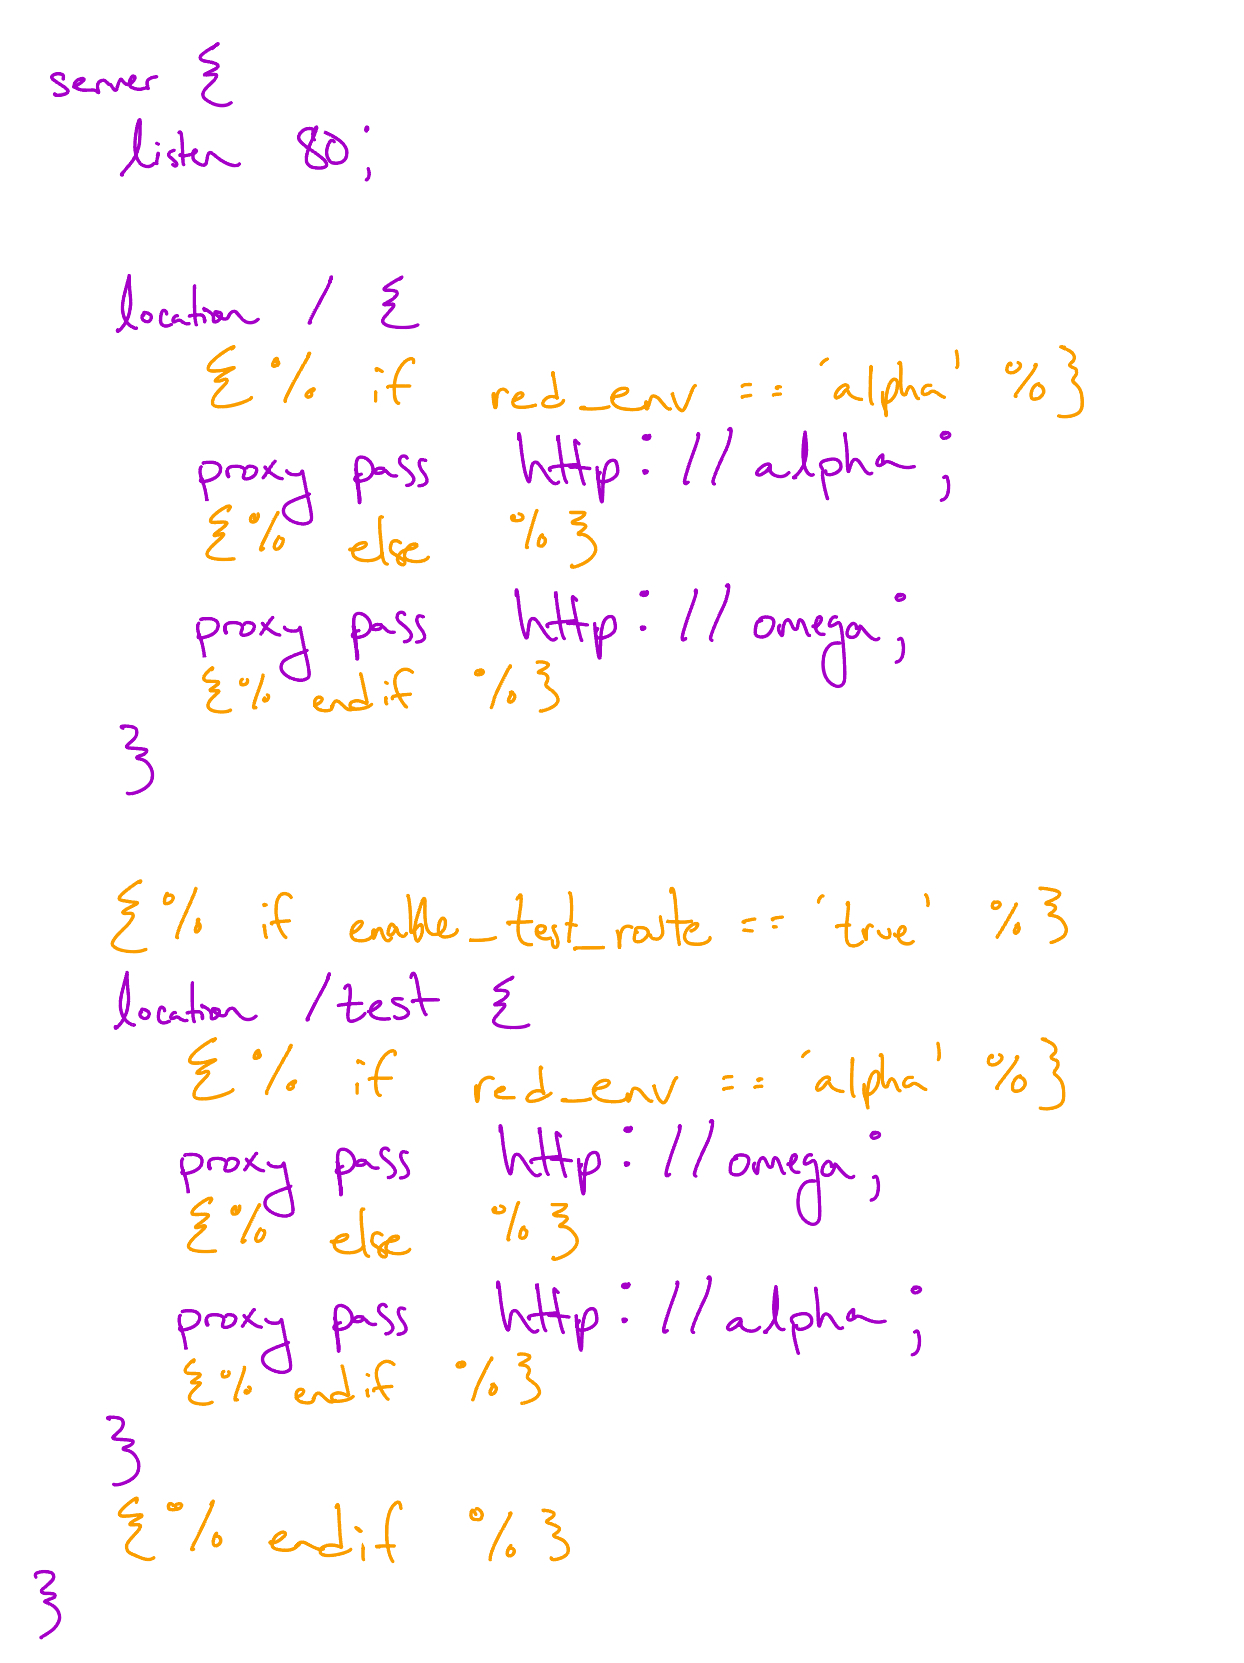 server {
listen 80;
location / {
{% if red_env == 'alpha' %}
proxy pass http://alpha;
{% else %}
proxy pass http://omega;
{% endif %}
}
{% if enable_test_route == 'true' %}
location /test {
{% if red_env == 'alpha' %}
proxy pass http://omega;
{% else %}
proxy pass http://alpha;
{% endif %}
}
{% endif %}
}